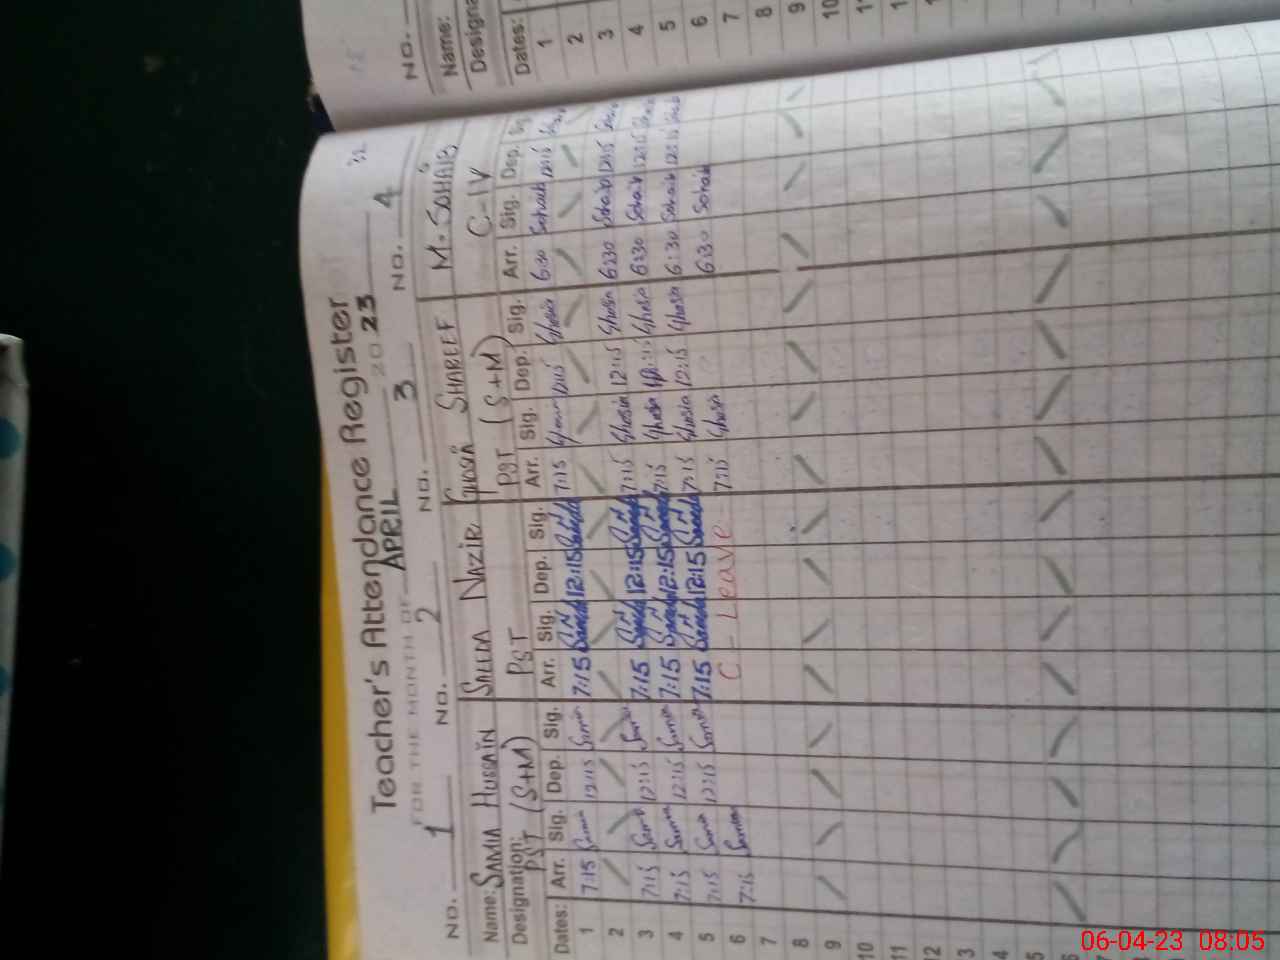 Teacher's Attendance Register
FOR THE MONTH OF APRIL 2023
NO. 1 NO. 2 NO. 3 NO. 4
Name: SAMIA HUSSAIN SAEEDA NAZIR GHOSIA SHAREEF M. SOHAIB
Designation: PST (S+M) PST PST (S+M) C-IV
Dates: Arr. Sig. Dep. Sig. Arr. Sig. Dep. Sig. Arr. Sig. Dep. Sig. Arr. Sig. Dep.
1 7:15 Samia 12:15 Samia 7:15 Saeeda 12:15 Saeeda 7:15 Ghosia 12:15 Ghosia 6:30 Sohaib 12:15
2
3 7:15 Samia 12:15 Samia 7:15 Saeeda 12:15 Saeeda 7:15 Ghosia 12:15 Ghosia 6:30 Sohaib 12:15
4 7:15 Samia 12:15 Samia 7:15 Saeeda 12:15 Saeeda 7:15 Ghosia 12:15 Ghosia 6:30 Sohaib 12:15
5 7:15 Samia 12:15 Samia 7:15 Saeeda 12:15 Saeeda 7:15 Ghosia 12:15 Ghosia 6:30 Sohaib 12:15
6 7:15 Samia C - Leave 7:15 Ghosia 6:30 Sohaib
7
8
9
10
11
12
NO.
Name:
Dates:
1
2
3
4
5
6
7
8
9
10
06-04-23 08:05